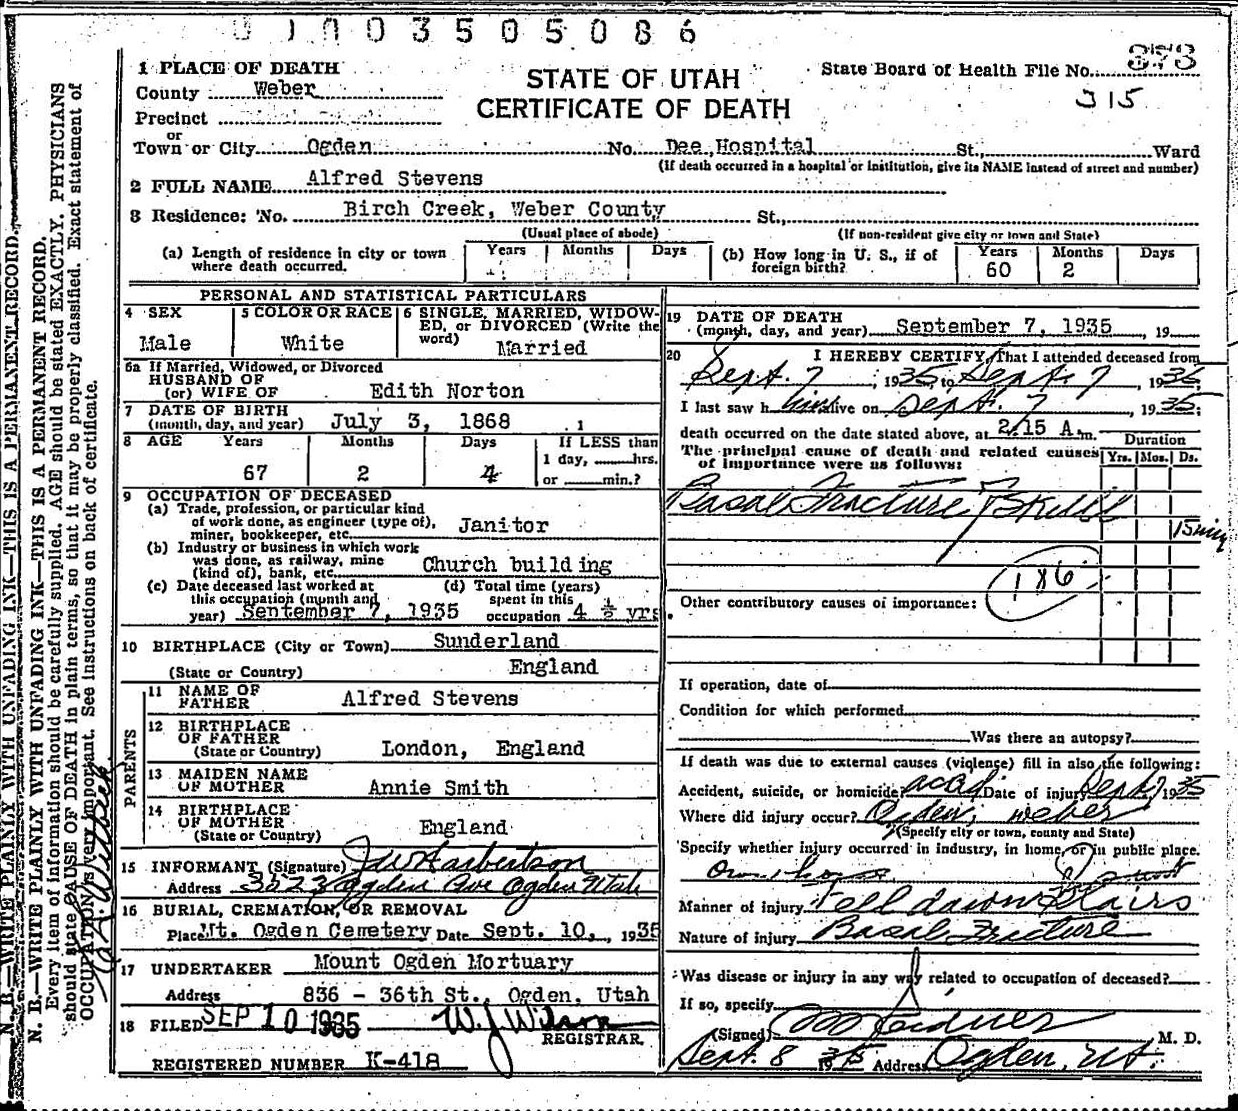 0 1 0 0 3 5 0 5 0 8 6
1 PLACE OF DEATH
County Weber
Precinct
or
Town or City Ogden No. Dee Hospital St., Ward
(If death occurred in a hospital or institution, give its NAME instead of street and number)
STATE OF UTAH
CERTIFICATE OF DEATH
State Board of Health File No. 373
315
2 FULL NAME Alfred Stevens
3 Residence: No. Birch Creek, Weber County St.,
(Usual place of abode) (If non-resident give city or town and State)
(a) Length of residence in city or town where death occurred. Years Months Days
(b) How long in U. S., if of foreign birth? Years 60 Months 2 Days
PERSONAL AND STATISTICAL PARTICULARS
4 SEX Male
5 COLOR OR RACE White
6 SINGLE, MARRIED, WIDOW-
ED, or DIVORCED (Write the
word) Married
6a If Married, Widowed, or Divorced
HUSBAND OF
(or) WIFE OF Edith Norton
7 DATE OF BIRTH
(month, day, and year) July 3, 1868
8 AGE Years 67 Months 2 Days 4
If LESS than
1 day, hrs.
or min.?
9 OCCUPATION OF DECEASED
(a) Trade, profession, or particular kind
of work done, as engineer (type of),
miner, bookkeeper, etc. Janitor
(b) Industry or business in which work
was done, as railway, mine
(kind of), bank, etc. Church building
(c) Date deceased last worked at
this occupation (month and
year) September 7, 1935
(d) Total time (years)
spent in this
occupation 4 ½ yrs.
10 BIRTHPLACE (City or Town) Sunderland
(State or Country) England
PARENTS
11 NAME OF
FATHER Alfred Stevens
12 BIRTHPLACE
OF FATHER
(State or Country) London, England
13 MAIDEN NAME
OF MOTHER Annie Smith
14 BIRTHPLACE
OF MOTHER
(State or Country) England
15 INFORMANT (Signature) J W Harbertson
Address 3523 Ogden Ave Ogden Utah
16 BURIAL, CREMATION, OR REMOVAL
Place Mt. Ogden Cemetery Date Sept. 10, 1935
17 UNDERTAKER Mount Ogden Mortuary
Address 836 - 36th St., Ogden, Utah
18 FILED SEP 10 1935 W. J Wilson
REGISTRAR.
REGISTERED NUMBER K-418
19 DATE OF DEATH
(month, day, and year) September 7, 1935, 19
20 I HEREBY CERTIFY, That I attended deceased from
Sept. 7, 1935 to Sept. 7, 1935
I last saw him alive on Sept. 7, 1935;
death occurred on the date stated above, at 2:15 A. m.
The principal cause of death and related causes
of importance were as follows:
Duration
Yrs. Mos. Ds.
Basal Fracture of Skull
15 min
186
Other contributory causes of importance:
If operation, date of
Condition for which performed
Was there an autopsy?
If death was due to external causes (violence) fill in also the following:
Accident, suicide, or homicide? Accd Date of injury Sept 7 1935
Where did injury occur? Ogden, Weber
(Specify city or town, county and State)
Specify whether injury occurred in industry, in home, or in public place.
Own home
Manner of injury Fell down Stairs
Nature of injury Basal Fracture
Was disease or injury in any way related to occupation of deceased?
If so, specify
(Signed) M. D.
Sept. 8 1935 Address Ogden, Ut.
N. B.—WRITE PLAINLY WITH UNFADING INK—THIS IS A PERMANENT RECORD.
N. B.—WRITE PLAINLY WITH UNFADING INK—THIS IS A PERMANENT RECORD.
Every item of information should be carefully supplied. AGE should be stated EXACTLY. PHYSICIANS
should state CAUSE OF DEATH in plain terms, so that it may be properly classified. Exact statement of
OCCUPATION is very important. See instructions on back of certificate.